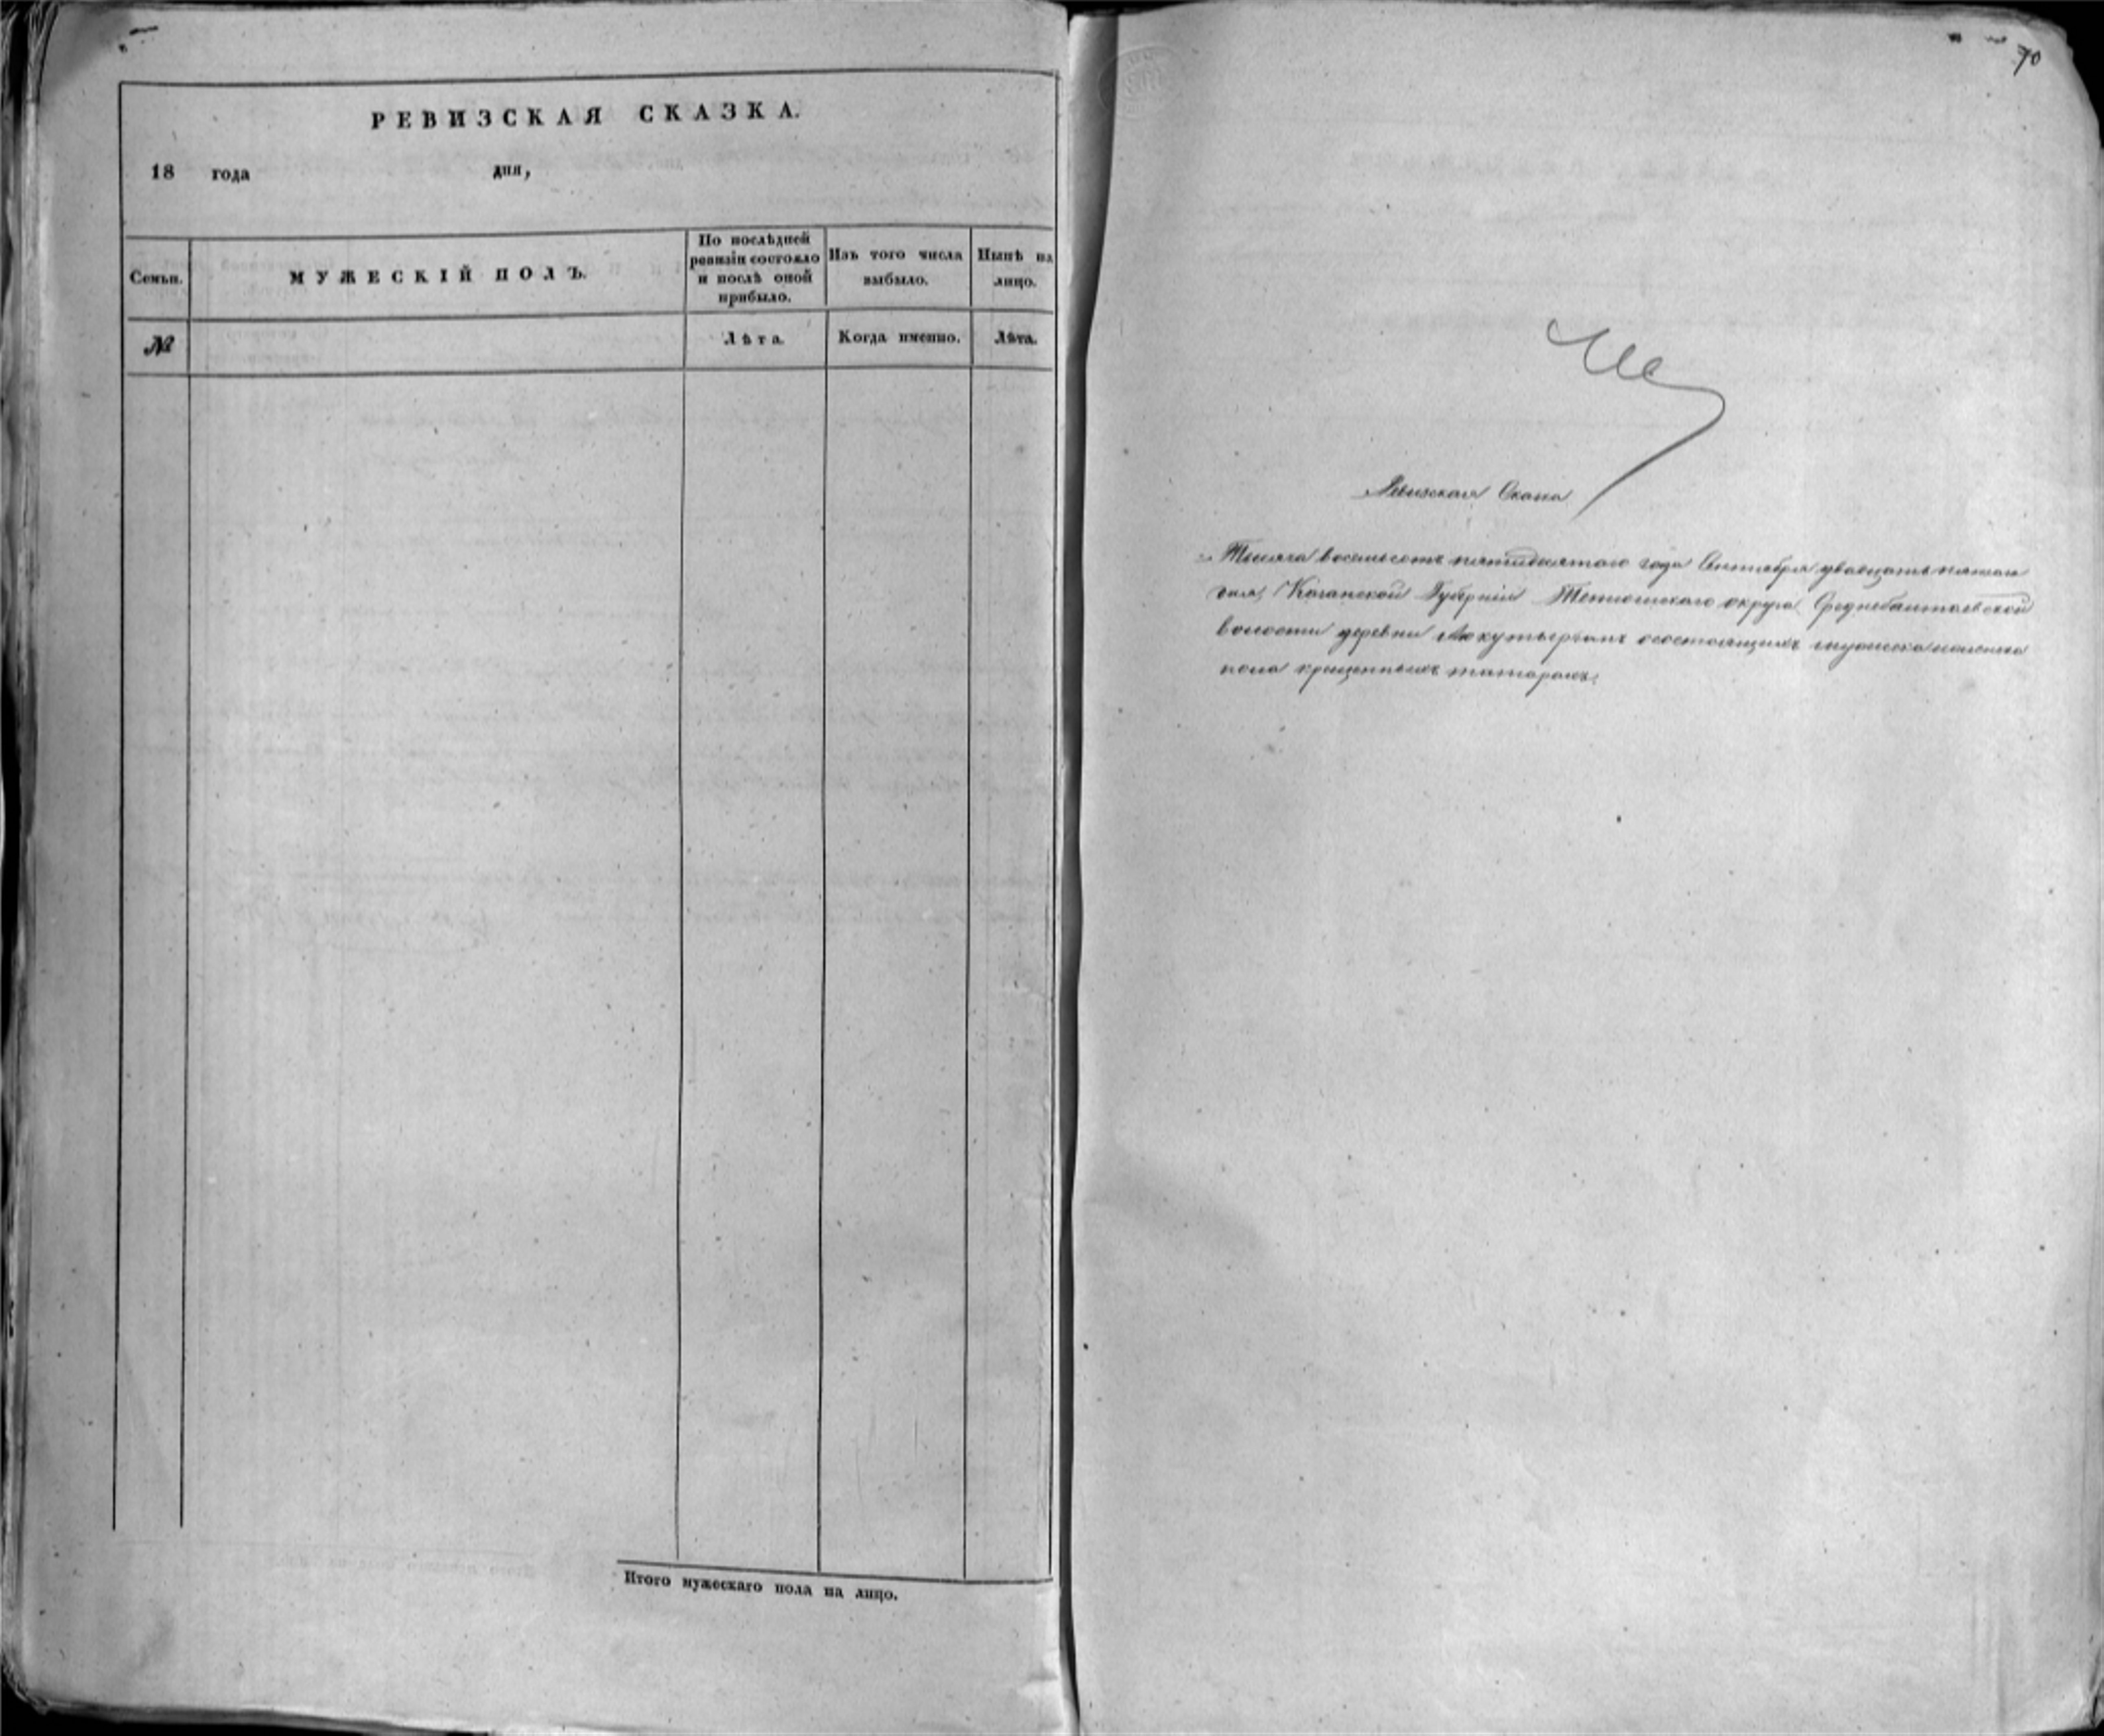 РЕВИЗСКАЯ СКАЗКА.
18 года дня,
Семьи.
МУЖЕСКІЙ ПОЛЪ.
По послѣдней
ревизіи состояло
и послѣ оной
прибыло.
Изъ того числа
выбыло.
Нынѣ на
лицо.
№
Лѣта.
Когда именно.
Лѣта.
Итого мужескаго пола на лицо.
70
Ревизская Скаска
Тысяча восемьсотъ пятидесятого года Сентября двадцать пятого
дня, Казанской Губерніи Тетюшскаго округа Среднебалтаевской
волости деревни осостоящихъ мужеска женска
пола крещенныхъ татарахъ.